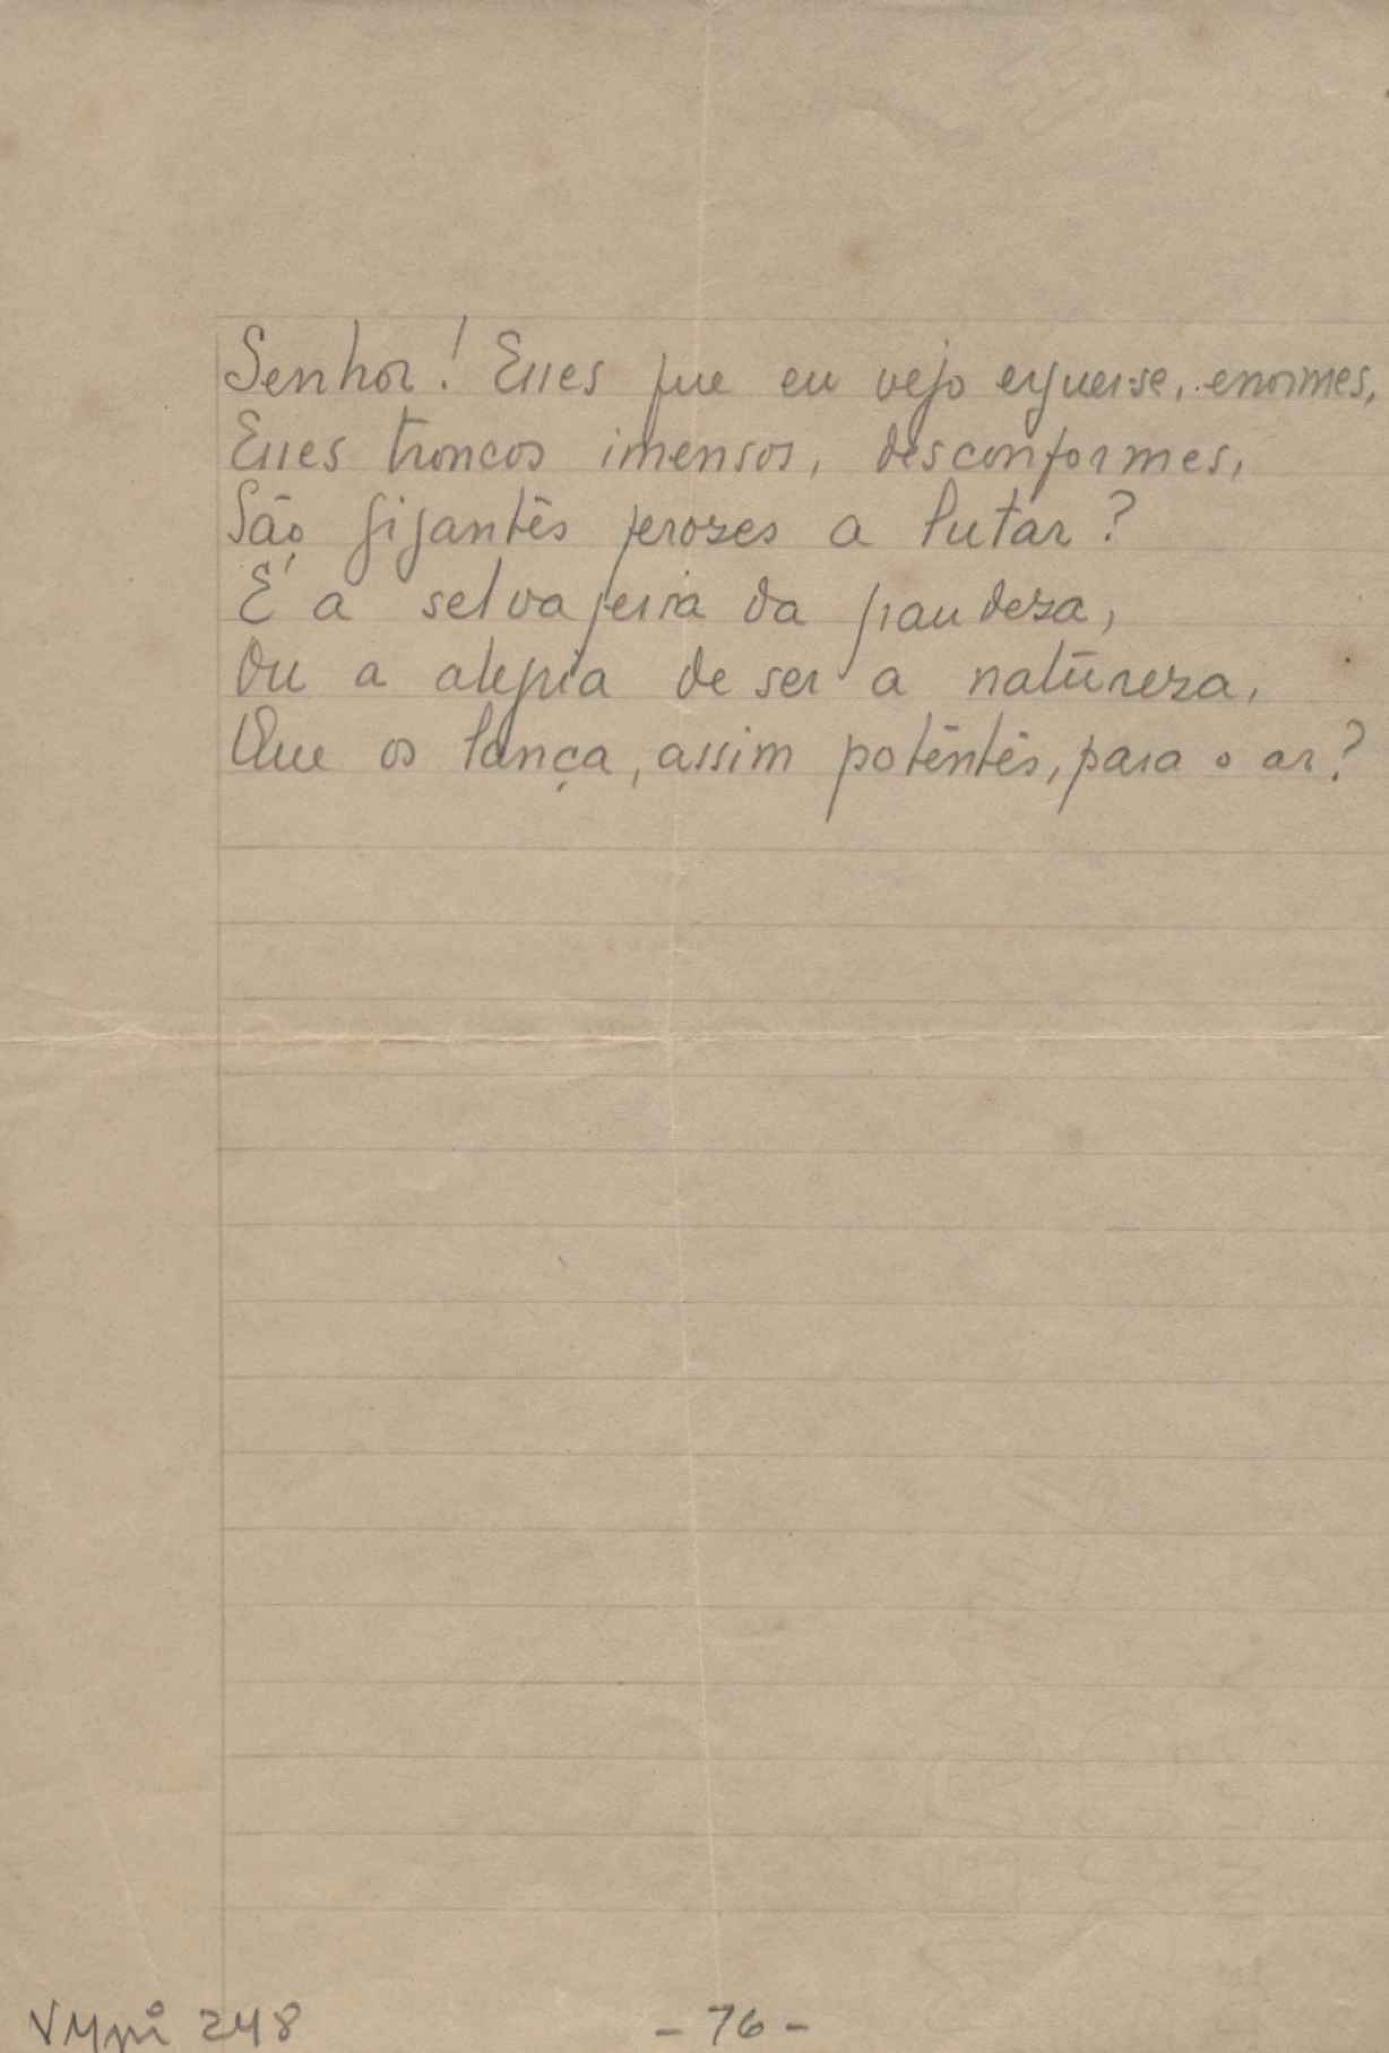 Senhor! Esses que eu vejo erguer-se, enormes,
Esses troncos imensos, desconformes,
São gigantes ferozes a lutar?
É a selvajeria da grandeza,
Ou a alegria de ser a natureza,
Que os lança, assim potentes, para o ar?
248
- 76 -